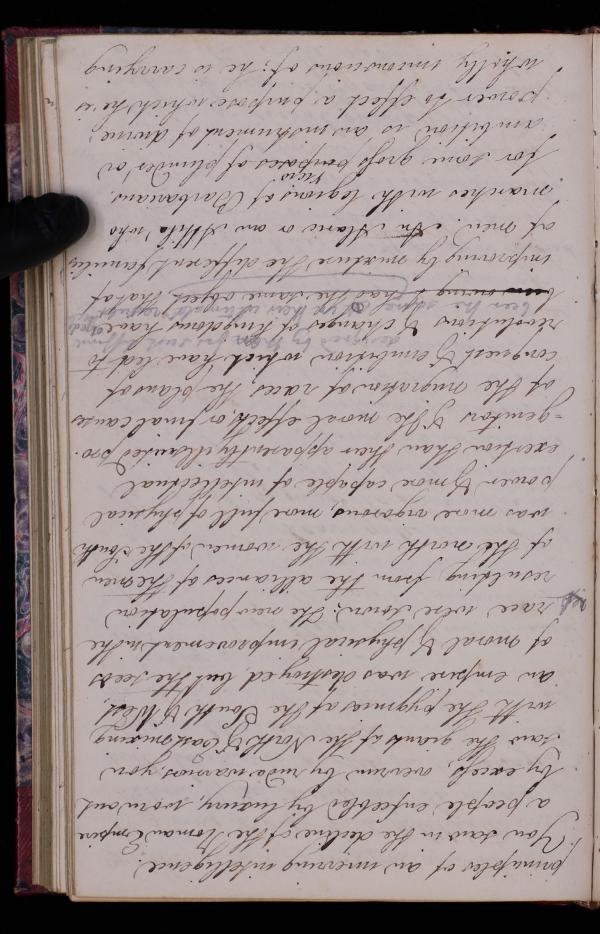 principles of an unerring intelligence.
You saw in the decline of the Roman Empire
a people enfeebled by luxury, worn out
by excess, overrun by rude warriors, you
saw the giants of the North & East mixing
with the pygmies of the South & West,
an empire was destroyed, but the seeds
of moral & physical improvement in the
race were sown; the new population
resulting from the alliances of the men
of the north with the women of the South
was more vigorous, more full of physical
power & more capable of intellectual
exertion than their apparently illsuited pro-
=genitors & the moral effects, or final causes
of the migration of races, the plans of
conquest & ambition which have led to
revolutions & changes of kingdoms have
designed by man for such different
been the same in their ultimate
had the same object that of
improving by mixture the different families
of men. An Alaric or an Attila, who
marches with legions of Barbarians,
for some gross purposes views of plunder or
ambition is an instrument of divine
power to effect a purpose which he is
wholly unconscious of; he is carrying